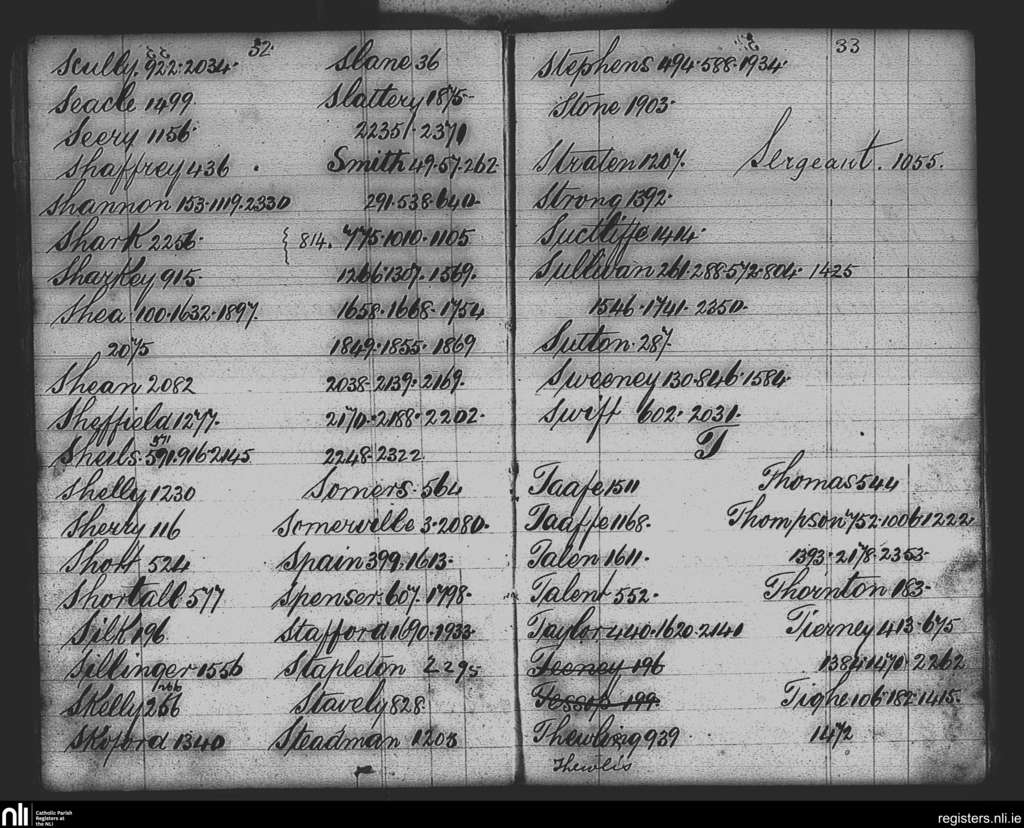 32
Scully. 922. 2034.
Seacle 1499
Seery 1156.
Shaffrey 436
Shannon 153. 1119. 2330
Shark 2256.
Sharkey 915.
Shea 100. 1632. 1897.
2075
Shean 2082
Sheffield 1277.
571
Sheils. 591. 916 2145
Shelly 1230
Sherry 116
Short 524
Shortall 577
Silk 196
Sillinger 1556
266
Skelly 256
Skoford 1340
Slane 36
Slattery 1875
2235. 2371
Smith 49. 57. 262
291. 538. 640
{ 814. 775. 1010. 1105
1266. 1307. 1569.
1658. 1668. 1754
1849. 1855. 1869
2038. 2139. 2169.
2170. 2188. 2202.
2248. 2322
Somers. 564
Somerville 3. 2080.
Spain 399. 1613.
Spenser. 607. 1798.
Stafford 1690. 1933.
Stapleton 2295
Stavely 828.
Steadman 1203
33
Stephens 494. 588. 1934.
Stone 1903.
Straten 1207. Sergeant. 1055.
Strong 1392.
Sutliffe 1414.
Sullivan 261. 288. 572. 804. 1425
1546. 1741. 2350.
Sutton. 287.
Sweeney 130. 846. 1584.
Swift 602. 2031.
T
Taafe 1511
Taaffe 1168.
Talen 1611.
Talent 552.
Taylor 440. 1620. 2141
Feeney 196
Fessop 199.
Thewlis 939
Thewlis
Thomas 544
Thompson 752. 1006. 1222
1393. 2178. 2353.
Thornton 183.
Tierney 413. 675
1384. 1470. 2262
Tighe 106. 182. 1415.
1472
nli
Catholic Parish
Registers at
the NLI
registers.nli.ie